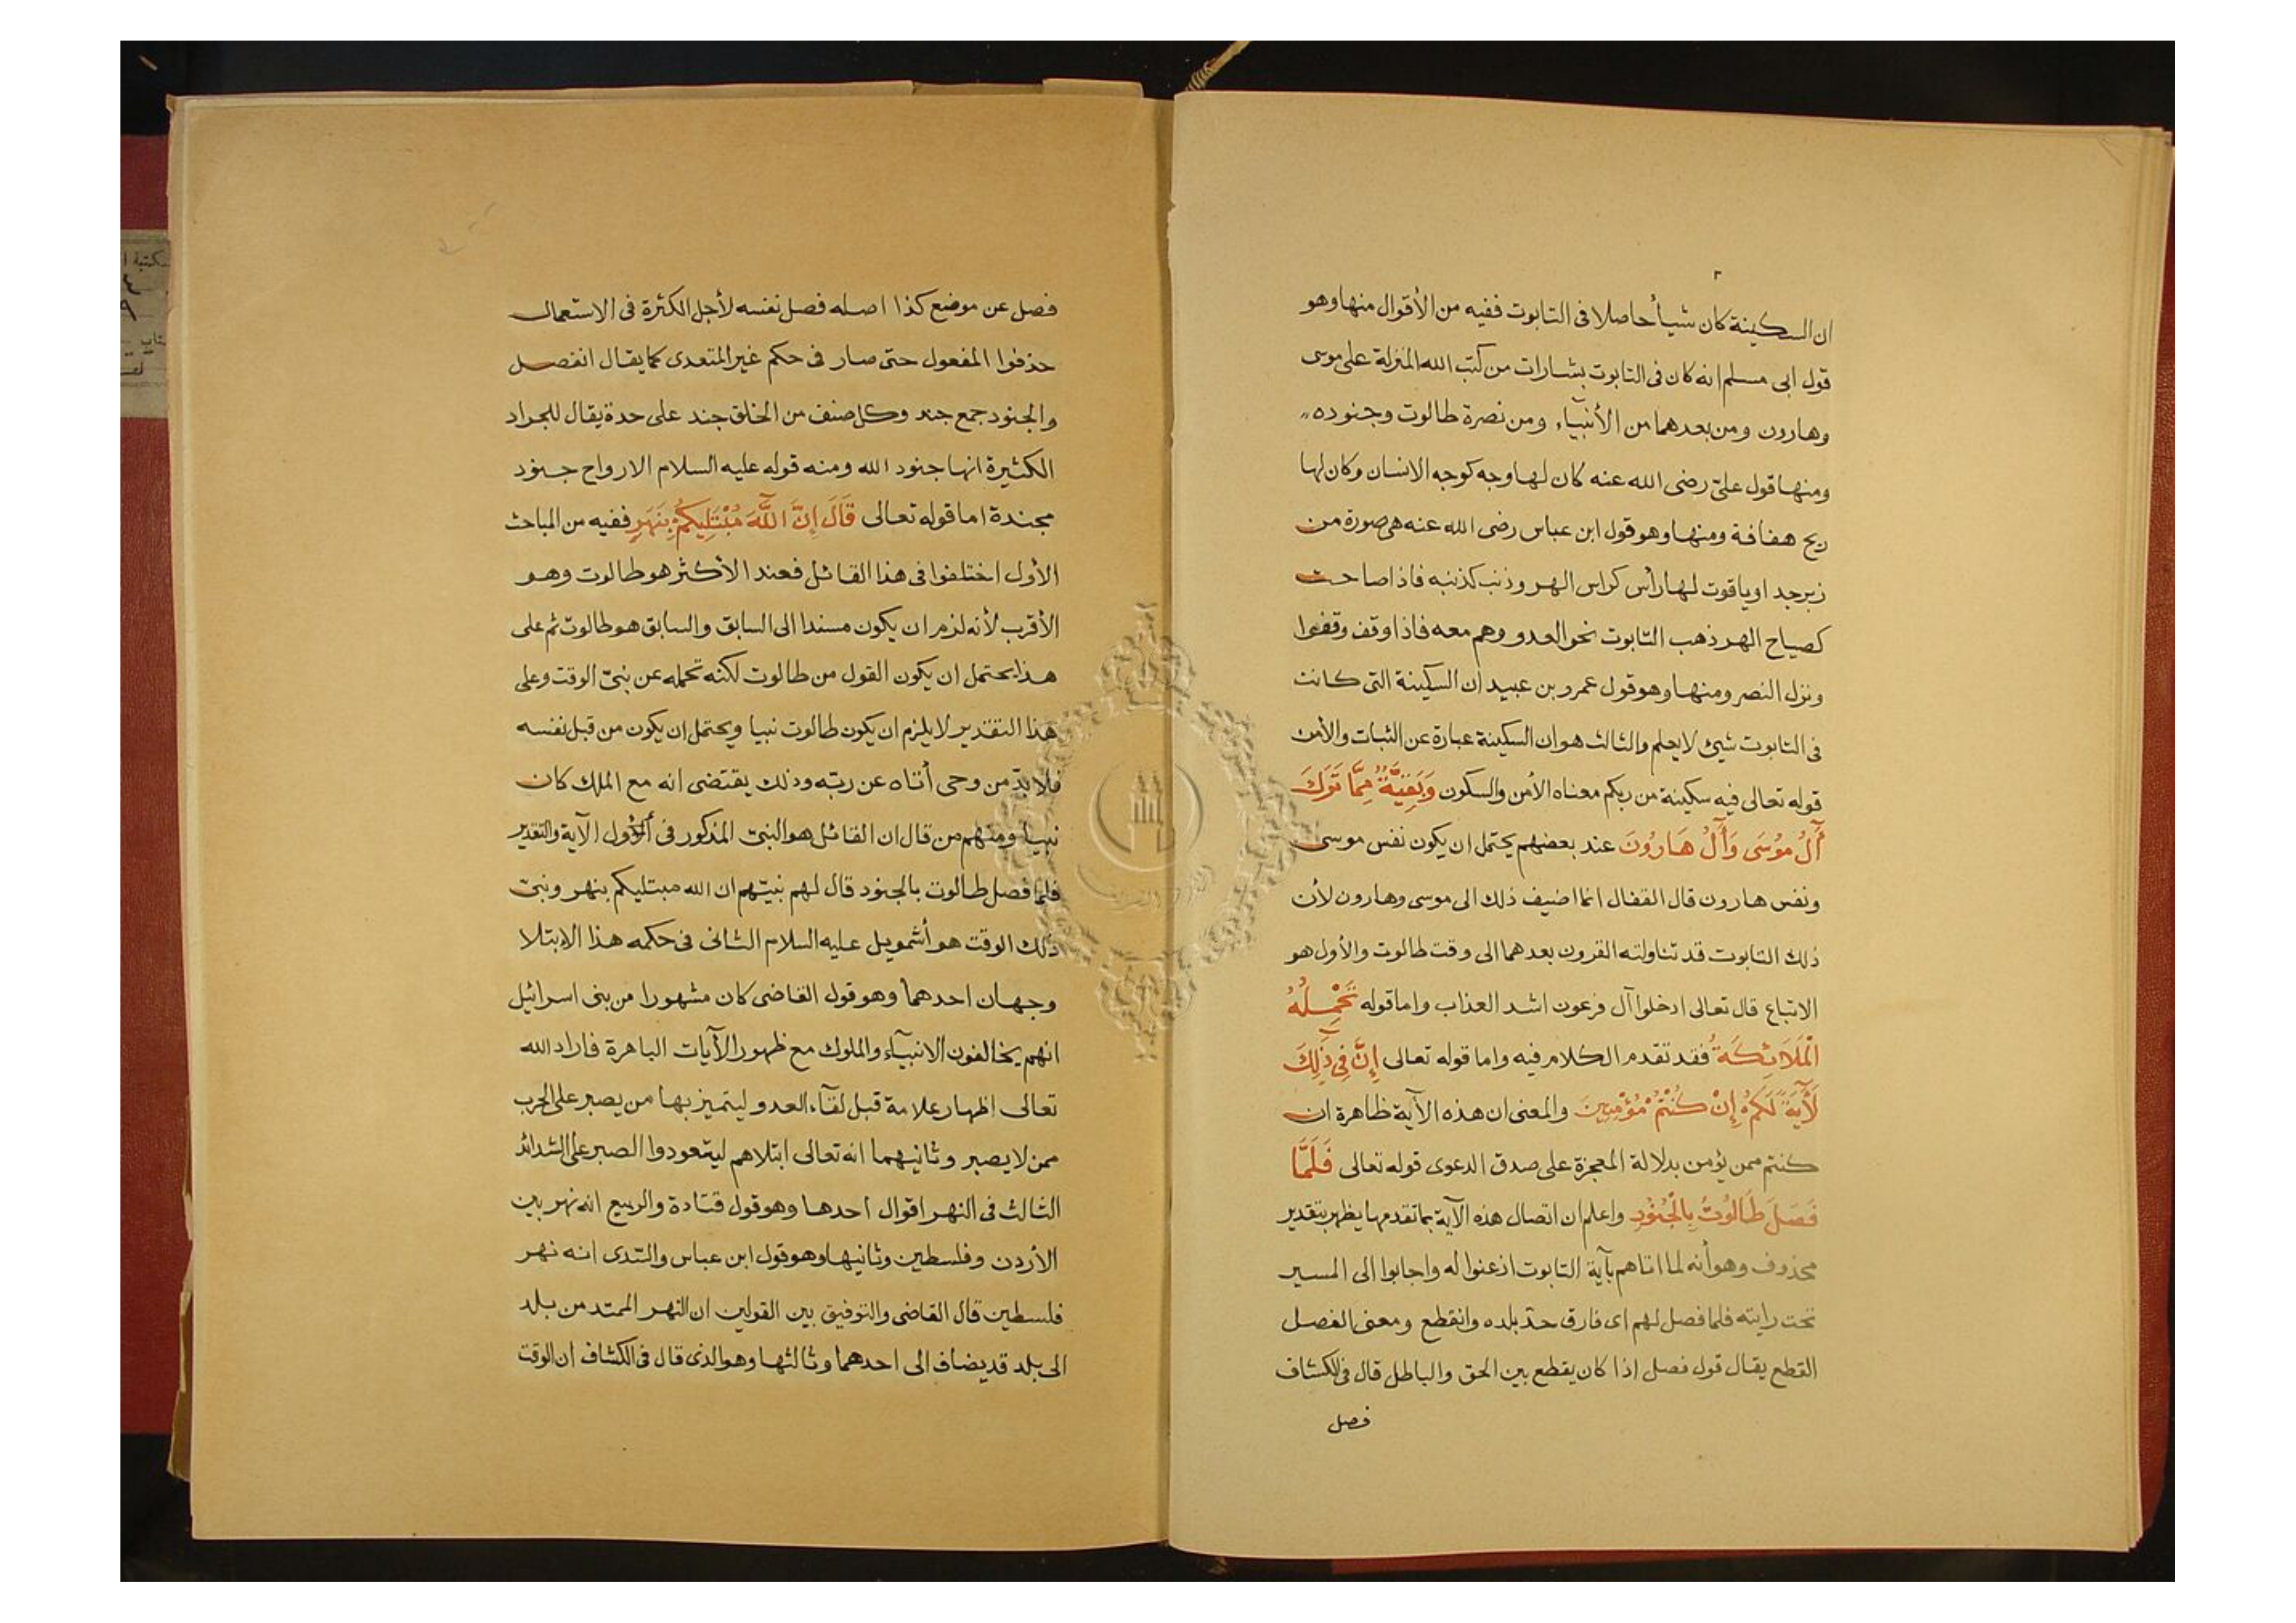 ٢
ان السكينة كان شيأ حاصلا فى التابوت ففيه من الأقوال منها وهو
قول ابى مسلم انه كان فى التابوت بشارات من كتب الله المنزلة على موسى
وهارون ومن بعدهما من الأنبيآء ومن نصرة طالوت وجنوده
ومنها قول علىّ رضى الله عنه كان لها وجه كوجه الانسان وكان لها
ريح هفافة ومنها وهو قول ابن عباس رضى الله عنه هى صورة من
زبرجد او ياقوت لها رأس كراس الهر وذنب كذنبه فاذا صاحت
كصياح الهر ذهب التابوت نحو العدو وهم معه فاذا وقف وقفوا
ونزل النصر ومنها وهو قول عمرو بن عبيد ان السكينة التى كانت
فى التابوت شئ لا يعلم والثالث هو ان السكينة عبارة عن الثبات والأمن
قوله تعالى فيه سكينة من ربكم معناه الأمن والسكون وَبَقِيَّةٌ مِمَّا تَرَكَ
آلُ مُوسَى وَآلُ هَارُونَ عند بعضهم يحتمل ان يكون نفس موسى
ونفس هارون قال القفال انما اضيف ذلك الى موسى وهارون لأن
ذلك التابوت قد تناولته القرون بعدهما الى وقت طالوت والأول هو
الاتباع قال تعالى ادخلوا آل فرعون اشد العذاب واما قوله تَحْمِلُهُ
الْمَلَائِكَةُ فقد تقدم الكلام فيه واما قوله تعالى إِنَّ فِي ذَلِكَ
لَآيَةً لَكُمْ إِنْ كُنْتُمْ مُؤْمِنِينَ والمعنى ان هذه الآية ظاهرة ان
كنتم ممن يؤمن بدلالة المعجزة على صدق الدعوى قوله تعالى فَلَمَّا
فَصَلَ طَالُوتُ بِالْجُنُودِ واعلم ان اتصال هذه الآية بما تقدمها يظهر بتقدير
محذوف وهو أنه لما اتاهم بآية التابوت اذعنوا له واجابوا الى المسير
تحت رايته فلما فصل لهم اى فارق حد بلده وانقطع ومعنى الفصل
القطع يقال قول فصل اذا كان يقطع بين الحق والباطل قال فى الكشاف
فصل
فصل عن موضع كذا اصله فصل نفسه لأجل الكثرة فى الاستعمال
حذفوا المفعول حتى صار فى حكم غير المتعدى كما يقال انفصل
والجنود جمع جند وكل صنف من الخلق جند على حدة يقال للجراد
الكثيرة انها جنود الله ومنه قوله عليه السلام الارواح جنود
مجندة اما قوله تعالى قَالَ إِنَّ اللَّهَ مُبْتَلِيكُمْ بِنَهَرٍ ففيه من المباحث
الأول اختلفوا فى هذا القائل فعند الأكثر هو طالوت وهو
الأقرب لأنه لزم ان يكون مسندا الى السابق والسابق هو طالوت ثم على
هذا يحتمل ان يكون القول من طالوت لكنه تحمله عن نبىّ الوقت وعلى
هذا التقدير لا يلزم ان يكون طالوت نبيا ويحتمل ان يكون من قبل نفسه
فلا بدّ من وحى أتاه عن ربّه وذلك يقتضى انه مع الملك كان
نبيا ومنهم من قال ان القائل هو النبىّ المذكور فى أول الآية والتقدير
فلما فصل طالوت بالجنود قال لهم نبيّهم ان الله مبتليكم بنهر ونبىّ
ذلك الوقت هو أشمويل عليه السلام الثانى فى حكمه هذا الابتلا
وجهان احدهما وهو قول القاضى كان مشهورا من بنى اسرائيل
انهم يخالفون الانبيآء والملوك مع ظهور الآيات الباهرة فاراد الله
تعالى اظهار علامة قبل لقآء العدو ليتميز بها من يصبر على الحرب
ممن لا يصبر وثانيهما انه تعالى ابتلاهم ليتعودوا الصبر على الشدائد
الثالث فى النهر اقوال احدها وهو قول قتادة والربيع انه نهر بين
الأردن وفلسطين وثانيها وهو قول ابن عباس والسّدى انه نهر
فلسطين قال القاضى والتوفيق بين القولين ان النهر الممتد من بلد
الى بلد قد يضاف الى احدهما وثالثها وهو الذى قال فى الكشاف ان الوقت